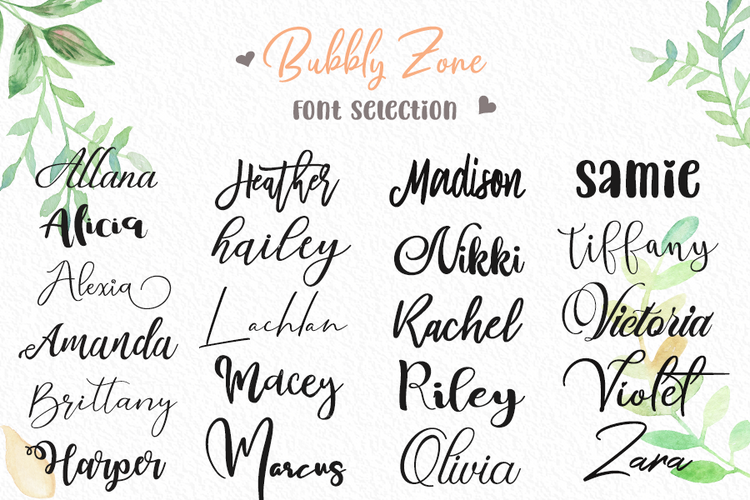 Bubbly Zone
Font Selection
Allana
Alicia
Alexia
Amanda
Brittany
Harper
Heather
hailey
Lachlan
Macey
Marcus
Madison
Nikki
Rachel
Riley
Olivia
samie
Tiffany
Victoria
Violet
Zara